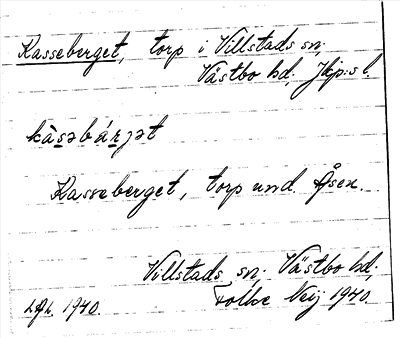 Kasseberget, torp i Villstads sn,
Västbo hd, Jkp:s l.
kàsəbár̯jət
Kasseberget, torp und. Åsen.
Villstads sn. Västbo hd,
1940. Folke Neij 1940.